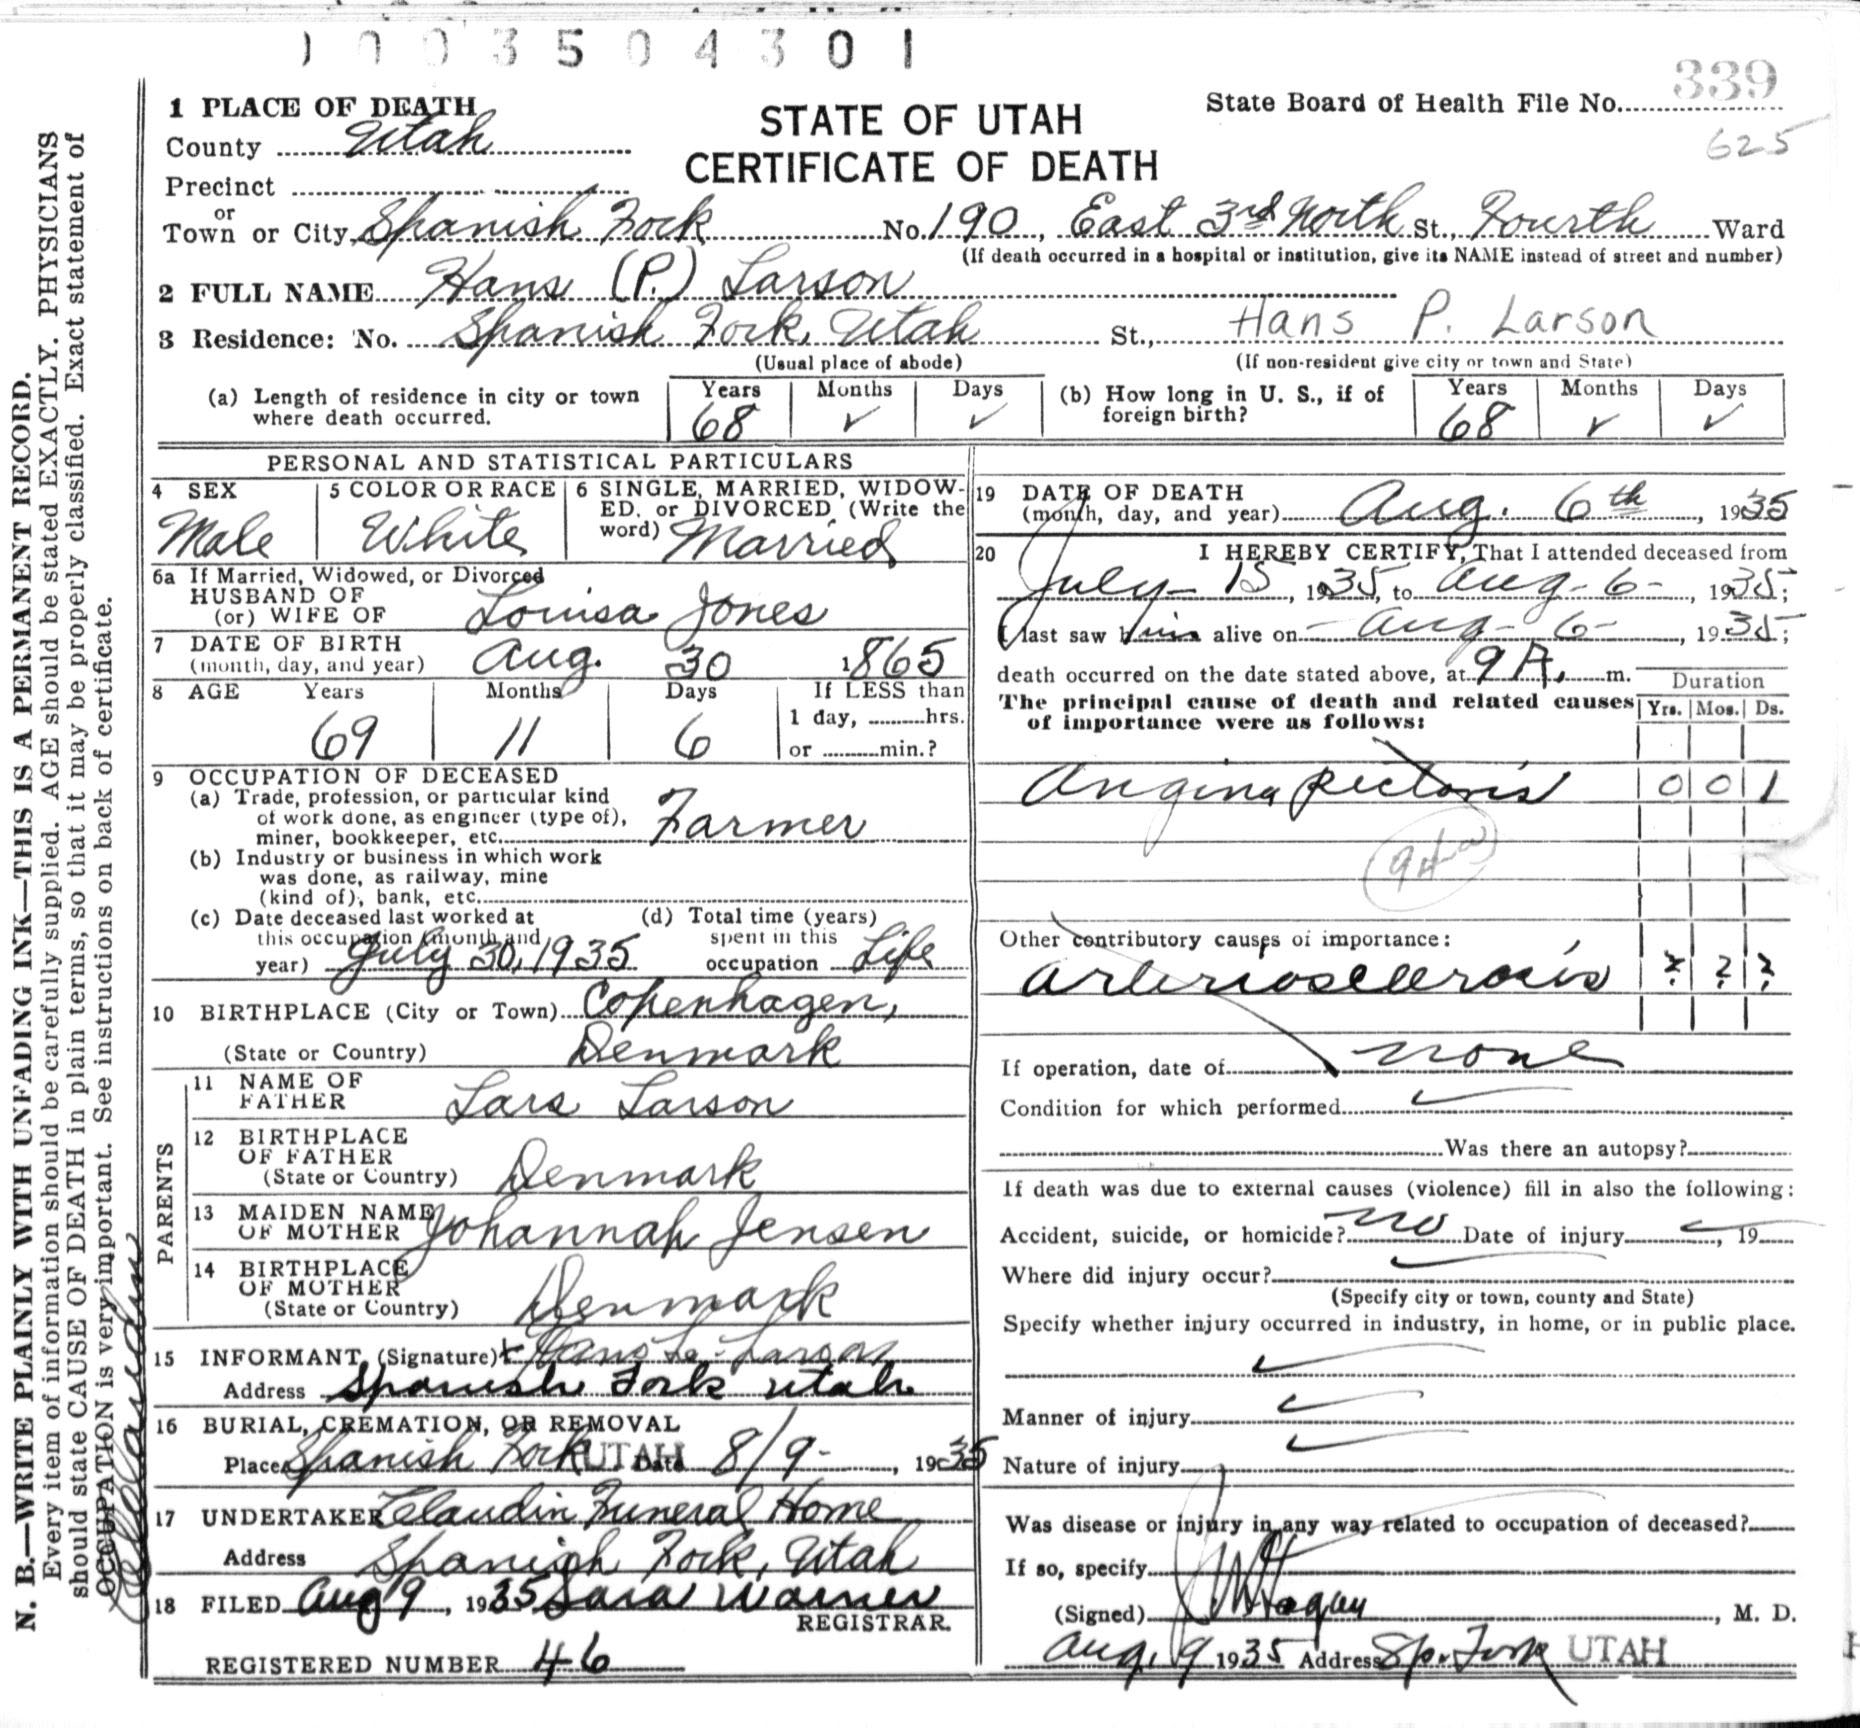 1003504301
339
1 PLACE OF DEATH
STATE OF UTAH
CERTIFICATE OF DEATH
State Board of Health File No.
625
County Utah
Precinct
or
Town or City Spanish Fork No. 190, East 3rd North St., Fourth Ward
(If death occurred in a hospital or institution, give its NAME instead of street and number)
2 FULL NAME Hans (P.) Larson
3 Residence: No. Spanish Fork, Utah St., Hans P. Larson
(Usual place of abode) (If non-resident give city or town and State)
(a) Length of residence in city or town where death occurred. Years 68 Months ✓ Days ✓
(b) How long in U. S., if of foreign birth? Years 68 Months ✓ Days ✓
PERSONAL AND STATISTICAL PARTICULARS
4 SEX Male
5 COLOR OR RACE White
6 SINGLE, MARRIED, WIDOW-
ED, or DIVORCED (Write the
word) Married
6a If Married, Widowed, or Divorced
HUSBAND OF
(or) WIFE OF Louisa Jones
7 DATE OF BIRTH
(month, day, and year) Aug. 30 1865
8 AGE Years 69 Months 11 Days 6
If LESS than
1 day, hrs.
or min.?
9 OCCUPATION OF DECEASED
(a) Trade, profession, or particular kind
of work done, as engineer (type of),
miner, bookkeeper, etc. Farmer
(b) Industry or business in which work
was done, as railway, mine
(kind of), bank, etc.
(c) Date deceased last worked at
this occupation (month and
year) July 30, 1935
(d) Total time (years)
spent in this
occupation Life
10 BIRTHPLACE (City or Town) Copenhagen,
(State or Country) Denmark
PARENTS
11 NAME OF
FATHER Lars Larson
12 BIRTHPLACE
OF FATHER
(State or Country) Denmark
13 MAIDEN NAME
OF MOTHER Johannah Jensen
14 BIRTHPLACE
OF MOTHER
(State or Country) Denmark
15 INFORMANT (Signature) + Hans L. Larson
Address Spanish Fork Utah.
16 BURIAL, CREMATION, OR REMOVAL
Place Spanish Fork UTAH Date 8/9-, 1935
17 UNDERTAKER Claudin Funeral Home
Address Spanish Fork, Utah
18 FILED Aug 9, 1935 Sara Warner
REGISTRAR.
REGISTERED NUMBER 46
19 DATE OF DEATH
(month, day, and year) Aug. 6th, 1935
20 I HEREBY CERTIFY, That I attended deceased from
July 15, 1935, to Aug-6-, 1935;
I last saw him alive on Aug-6-, 1935;
death occurred on the date stated above, at 9 A. m.
The principal cause of death and related causes
of importance were as follows:
Duration
Yrs. Mos. Ds.
Angina pectoris 0 0 1
94
Other contributory causes of importance:
Arteriosclerosis ? ? ?
If operation, date of none
Condition for which performed ✓
Was there an autopsy?
If death was due to external causes (violence) fill in also the following:
Accident, suicide, or homicide? no Date of injury ✓, 19
Where did injury occur? ✓
(Specify city or town, county and State)
Specify whether injury occurred in industry, in home, or in public place.
✓
Manner of injury ✓
Nature of injury ✓
Was disease or injury in any way related to occupation of deceased?
If so, specify
(Signed) J W Hagan, M. D.
Aug. 9 1935 Address Sp. Fork UTAH
N. B.—WRITE PLAINLY WITH UNFADING INK—THIS IS A PERMANENT RECORD.
Every item of information should be carefully supplied. AGE should be stated EXACTLY. PHYSICIANS
should state CAUSE OF DEATH in plain terms, so that it may be properly classified. Exact statement of
OCCUPATION is very important. See instructions on back of certificate.
Claudin